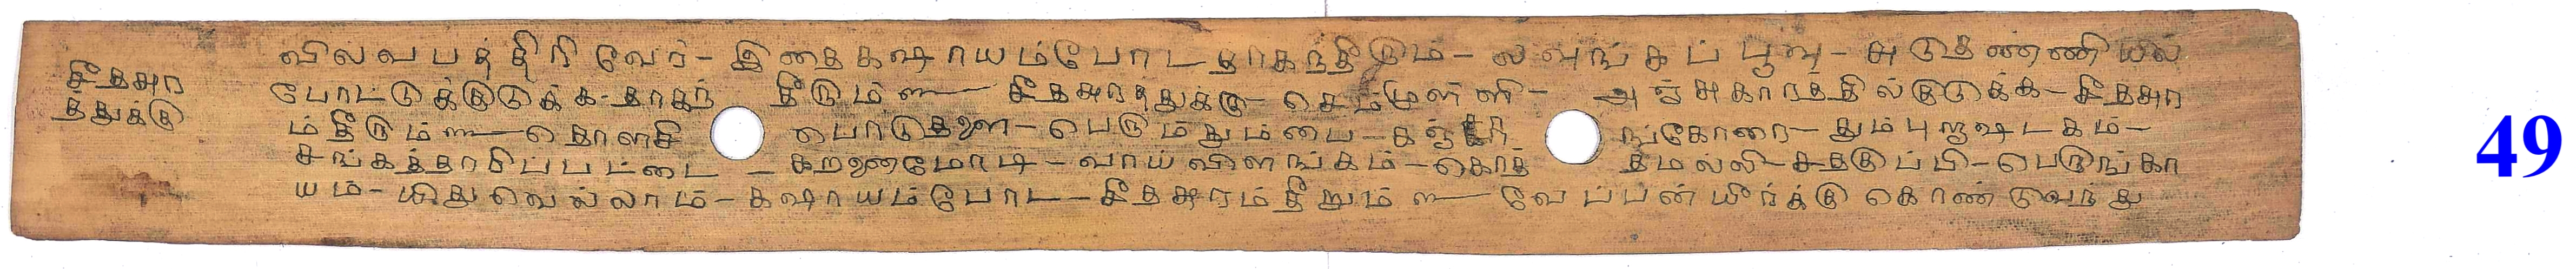 சீதசுர
த்துக்கு
விலவபத்திரி வேர் - இதை கஷாயம்போட தாகந்தீரும் - லவுங்கப் பூவு - சுடுதண்ணியில்
போட்டுக்குடுக்க - தாகந் தீடும் ௺ சீதசுரத்துக்கு செம்முள்ளி - அஞ்சுகாரத்தில்குடுக்க - சீதசுர
ம் தீடும் ௺ தொளசி பொடுதலை - பெடும் தும்பை - கஞ் ங்கோரை - தும்புருஷடகம் -
சங்கத்தாரிப்பட்டை - கறணைமோடி - வாய்விளங்கம் - கொத் தமல்லி - சதகுப்பி - பெடுங்கா
யம் - யிதுவெல்லாம் - கஷாயம்போட - சீதசுரம் தீறும் ௺ வேப்பன் யீர்க்கு கொண்டுவந்து
49